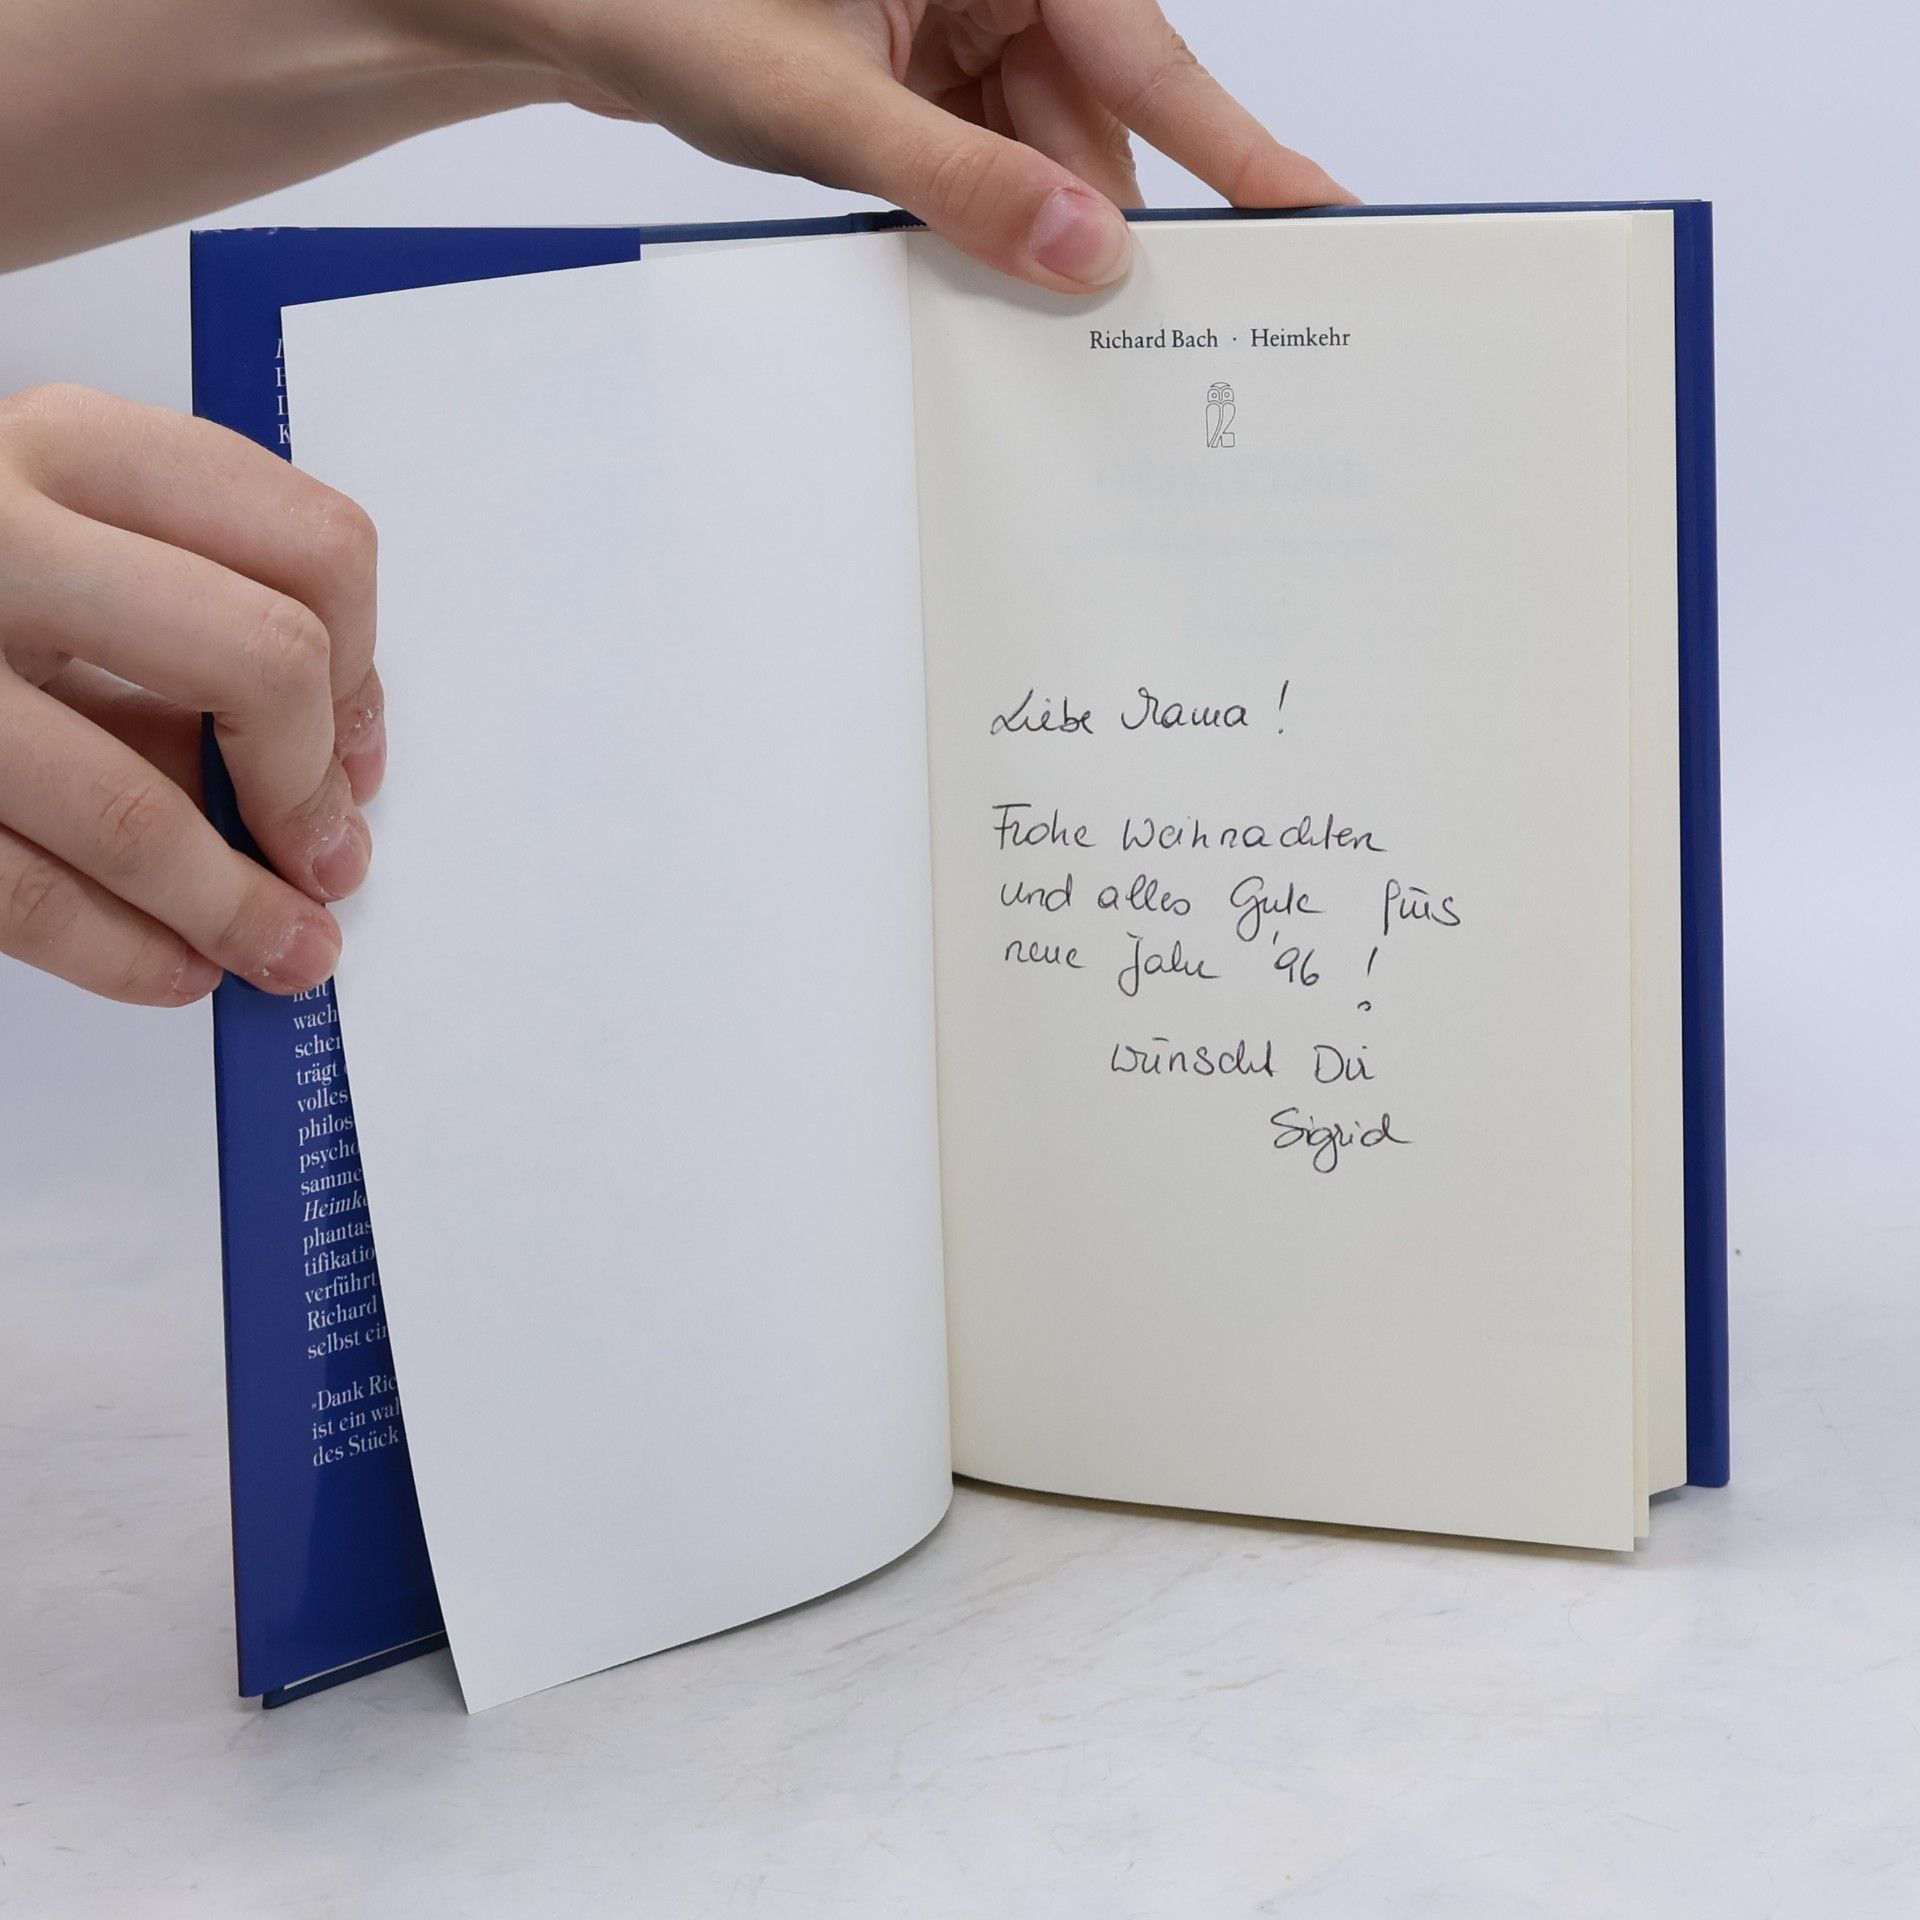 Richard Bach · Heimkehr
Liebe Mama !
Frohe Weihnachten
und alles Gute fürs
neue Jahr '96 !
wünscht Dir
Sigrid
K
heit
wach
scher
trägt
volles
philos
psycho
samme
Heimke
phantas
tifikatio
verführt
Richard
selbst ein
»Dank Ric
ist ein wal
des Stück